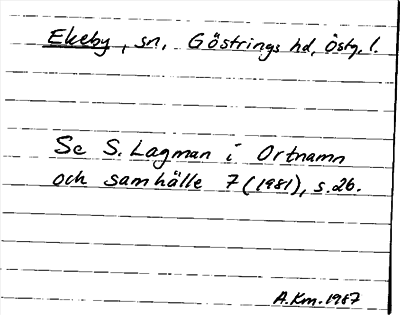 Ekeby, sn, Göstrings hd, Östg. l.
Se S. Lagman i Ortnamn
och samhälle 7 (1981), s. 26.
A.Km. 1987